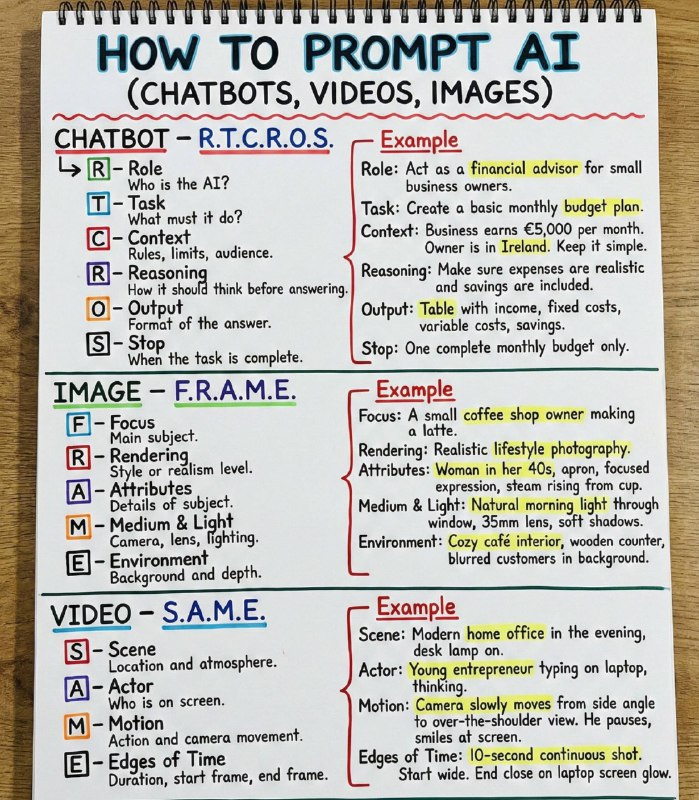 HOW TO PROMPT AI
(CHATBOTS, VIDEOS, IMAGES)
CHATBOT – R.T.C.R.O.S.
R – Role
Who is the AI?
T – Task
What must it do?
C – Context
Rules, limits, audience.
R – Reasoning
How it should think before answering.
O – Output
Format of the answer.
S – Stop
When the task is complete.
Example
Role: Act as a financial advisor for small
business owners.
Task: Create a basic monthly budget plan.
Context: Business earns €5,000 per month.
Owner is in Ireland. Keep it simple.
Reasoning: Make sure expenses are realistic
and savings are included.
Output: Table with income, fixed costs,
variable costs, savings.
Stop: One complete monthly budget only.
IMAGE – F.R.A.M.E.
F – Focus
Main subject.
R – Rendering
Style or realism level.
A – Attributes
Details of subject.
M – Medium & Light
Camera, lens, lighting.
E – Environment
Background and depth.
Example
Focus: A small coffee shop owner making
a latte.
Rendering: Realistic lifestyle photography.
Attributes: Woman in her 40s, apron, focused
expression, steam rising from cup.
Medium & Light: Natural morning light through
window, 35mm lens, soft shadows.
Environment: Cozy café interior, wooden counter,
blurred customers in background.
VIDEO – S.A.M.E.
S – Scene
Location and atmosphere.
A – Actor
Who is on screen.
M – Motion
Action and camera movement.
E – Edges of Time
Duration, start frame, end frame.
Example
Scene: Modern home office in the evening,
desk lamp on.
Actor: Young entrepreneur typing on laptop,
thinking.
Motion: Camera slowly moves from side angle
to over-the-shoulder view. He pauses,
smiles at screen.
Edges of Time: 10-second continuous shot.
Start wide. End close on laptop screen glow.